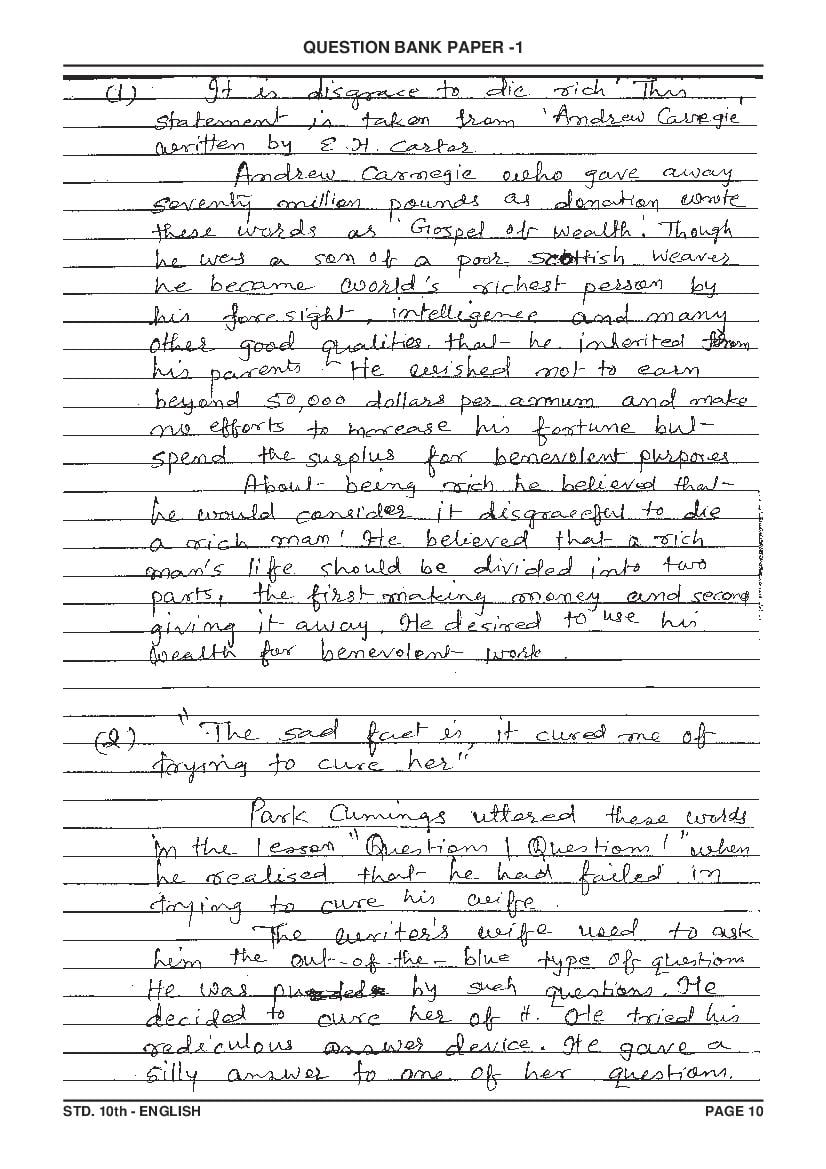 QUESTION BANK PAPER -1
(1) It is disgrace to die rich' This
statement is taken from 'Andrew Carnegie'
written by E.H. Carter.
Andrew Carnegie who gave away
seventy million pounds as donation wrote
these words as 'Gospel of Wealth'. Though
he was a son of a poor Scottish weaver
he became World's richest person by
his foresight, intelligence and many
other good qualities that he inherited from
his parents. He wished not to earn
beyond 50,000 dollars per annum and make
no efforts to increase his fortune but
spend the surplus for benevolent purposes
About being rich he believed that
he would consider it disgraceful to die
a rich man! He believed that a rich
man's life should be divided into two
parts, the first making money and second
giving it away. He desired to use his
wealth for benevolent work.
(2) "The sad fact is, it cured me of
trying to cure her"
Park Cumings uttered these words
in the lesson "Questions! Questions!" when
he realised that he had failed in
trying to cure his wife.
The writer's wife used to ask
him the out-of-the-blue type of question
He was by such questions. He
decided to cure her of it. He tried his
rediculous answer device. He gave a
silly answer to one of her questions.
STD. 10th - ENGLISH PAGE 10